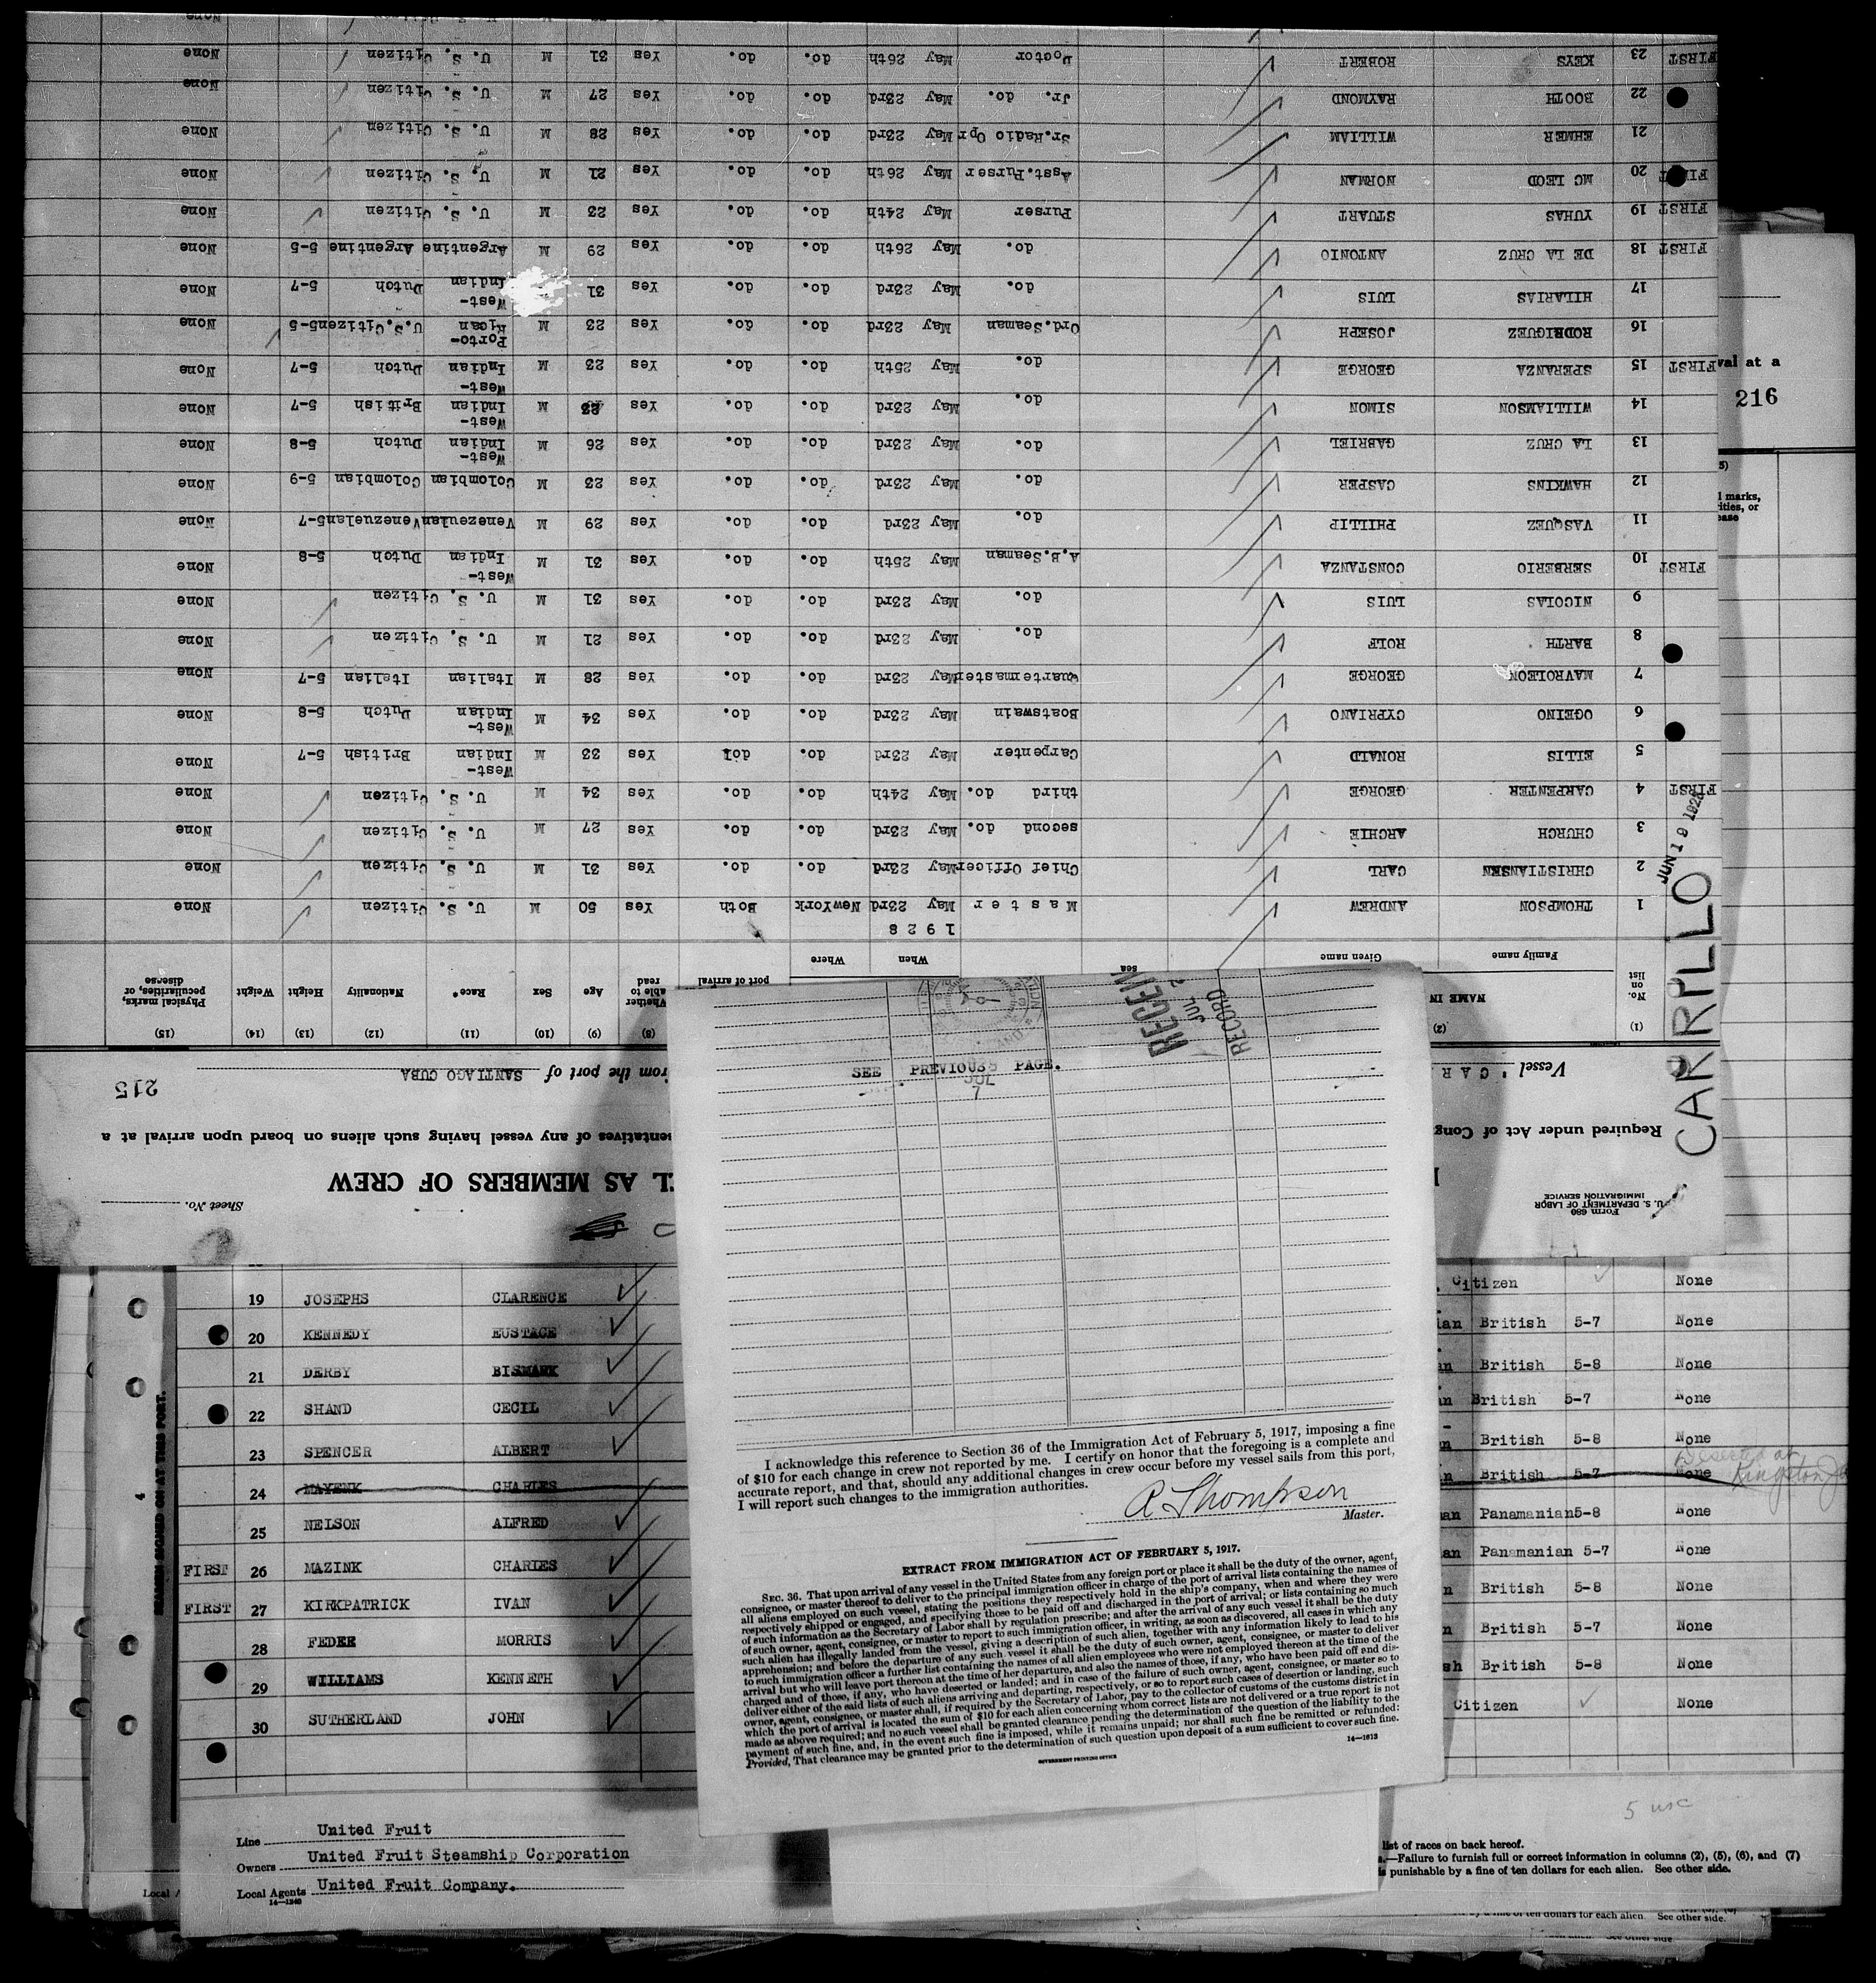 Form 680
U. S. DEPARTMENT OF LABOR
IMMIGRATION SERVICE
Sheet No.
L AS MEMBERS OF CREW
Required under Act of Cong
sentatives of any vessel having such aliens on board upon arrival at a
Vessel "CAR
from the port of SANTIAGO CUBA
215
CARRILLO
JUN 19 1928
(1) (2) (8) (9) (10) (11) (12) (13) (14) (15)
No. on list NAME IN Whether able to read Age Sex Race* Nationality Height Weight Physical marks, peculiarities, or disease
Family name Given name When Where port of arrival
1928
1 THOMPSON ANDREW Master May 23rd NewYork Both Yes 50 M U. S. Citizen None
2 CHRISTIANSEN CARL Chief Officer May 23rd do. do. Yes 31 M U. S. Citizen None
3 CHURCH ARCHIE second do. May 23rd do. do. Yes 27 M U. S. Citizen None
FIRST 4 CARPENTER GEORGE third do. May 24th do. do. Yes 34 M U. S. Citizen None
5 ELLIS RONALD Carpenter May 23rd do. do. Yes 33 M West-Indian British 5-7 None
6 OGEINO CYPRIANO Boatswain May 23rd do. do. Yes 34 M West-Indian Dutch 5-8 None
7 MAVROLEON GEORGE Quartermaster May 23rd do. do. Yes 28 M Italian Italian 5-7 None
8 BARTH ROLF do. May 23rd do. do. Yes 21 M U. S. Citizen None
9 NICOLAS LUIS do. May 23rd do. do. Yes 31 M U. S. Citizen None
FIRST 10 SERBERIO CONSTANZA A.B.Seaman May 25th do. do. Yes 31 M West-Indian Dutch 5-8 None
11 VASQUEZ PHILLIP do. May 23rd do. do. Yes 29 M Venezeulan Venezuelan 5-7 None
12 HAWKINS CASPER do. May 23rd do. do. Yes 23 M Colombian Colombian 5-9 None
13 LA CRUZ GABRIEL do. May 23rd do. do. Yes 26 M West-Indian Dutch 5-8 None
14 WILLIAMSON SIMON do. May 23rd do. do. Yes M West-Indian British 5-7 None
FIRST 15 SPERANZA GEORGE do. May 25th do. do. Yes 23 M West-Indian Dutch 5-7 None
16 RODRIGUEZ JOSEPH Ord.Seaman May 23rd do. do. Yes 23 M Porto-Rican U.S.Citizen 5-5 None
17 HILARIAS LUIS do. May 23rd do. do. Yes 31 West-Indian Dutch 5-7 None
FIRST 18 DE LA CRUZ ANTONIO do. May 26th do. do. Yes 29 M Argentine Argentine 5-5 None
FIRST 19 YUHAS STUART Purser May 24th do. do. Yes 23 M U. S. Citizen None
FIRST 20 MC LEOD NORMAN Asst.Purser May 26th do. do. Yes 21 M U. S. Citizen None
21 EHMER WILLIAM Sr.Radio Opr May 23rd do. do. Yes 28 M U. S. Citizen None
22 BOOTH RAYMOND Jr. do. May 23rd do. do. Yes 27 M U. S. Citizen None
FIRST 23 KEYS ROBERT Doctor May 26th do. do. Yes 31 M U. S. Citizen None
None
val at a
216
l marks,
rities, or
ease
RECEIV
JUL 2
RECORD
SEE PREVIOUS PAGE.
JUL
7
I acknowledge this reference to Section 36 of the Immigration Act of February 5, 1917, imposing a fine
of $10 for each change in crew not reported by me. I certify on honor that the foregoing is a complete and
accurate report, and that, should any additional changes in crew occur before my vessel sails from this port,
I will report such changes to the immigration authorities.
A Thompson
Master.
EXTRACT FROM IMMIGRATION ACT OF FEBRUARY 5, 1917.
SEC. 36. That upon arrival of any vessel in the United States from any foreign port or place it shall be the duty of the owner, agent,
consignee, or master thereof to deliver to the principal immigration officer in charge of the port of arrival lists containing the names of
all aliens employed on such vessel, stating the positions they respectively hold in the ship's company, when and where they were
respectively shipped or engaged, and specifying those to be paid off and discharged in the port of arrival; or lists containing so much
of such information as the Secretary of Labor shall by regulation prescribe; and after the arrival of any such vessel it shall be the duty
of such owner, agent, consignee, or master to report to such immigration officer, in writing, as soon as discovered, all cases in which any
such alien has illegally landed from the vessel, giving a description of such alien, together with any information likely to lead to his
apprehension; and before the departure of any such vessel it shall be the duty of such owner, agent, consignee, or master to deliver
to such immigration officer a further list containing the names of all alien employees who were not employed thereon at the time of the
arrival but who will leave port thereon at the time of her departure, and also the names of those, if any, who have been paid off and dis-
charged and of those, if any, who have deserted or landed; and in case of the failure of such owner, agent, consignee, or master so to
deliver either of the said lists of such aliens arriving and departing, respectively, or so to report such cases of desertion or landing, such
owner, agent, consignee, or master shall, if required by the Secretary of Labor, pay to the collector of customs of the customs district in
which the port of arrival is located the sum of $10 for each alien concerning whom correct lists are not delivered or a true report is not
made as above required; and no such vessel shall be granted clearance pending the determination of the question of the liability to the
payment of such fine, and, in the event such fine is imposed, while it remains unpaid; nor shall such fine be remitted or refunded:
Provided, That clearance may be granted prior to the determination of such question upon deposit of a sum sufficient to cover such fine.
14—1613
GOVERNMENT PRINTING OFFICE
SEAMEN SIGNED ON AT THIS PORT.
4
Citizen None
19 JOSEPHS CLARENCE
20 KENNEDY EUSTACE an British 5-7 None
21 DERBY BISMARK n British 5-8 None
22 SHAND CECIL n British 5-7 None
23 SPENCER ALBERT n British 5-8 None
24 MAYENK CHARLES n British 5-7 None Deserted at Kingston Ja
25 NELSON ALFRED an Panamanian 5-8 None
FIRST 26 MAZINK CHARLES an Panamanian 5-7 None
FIRST 27 KIRKPATRICK IVAN n British 5-8 None
28 FEDEE MORRIS n British 5-7 None
29 WILLIAMS KENNETH sh British 5-8 None
30 SUTHERLAND JOHN Citizen None
5 usc
Line United Fruit
Owners United Fruit Steamship Corporation
Local Agents United Fruit Company.
14—1240
Local A
list of races on back hereof.
.—Failure to furnish full or correct information in columns (2), (5), (6), and (7)
is punishable by a fine of ten dollars for each alien. See other side.
of ten dollars for each alien. See other side.
See other side